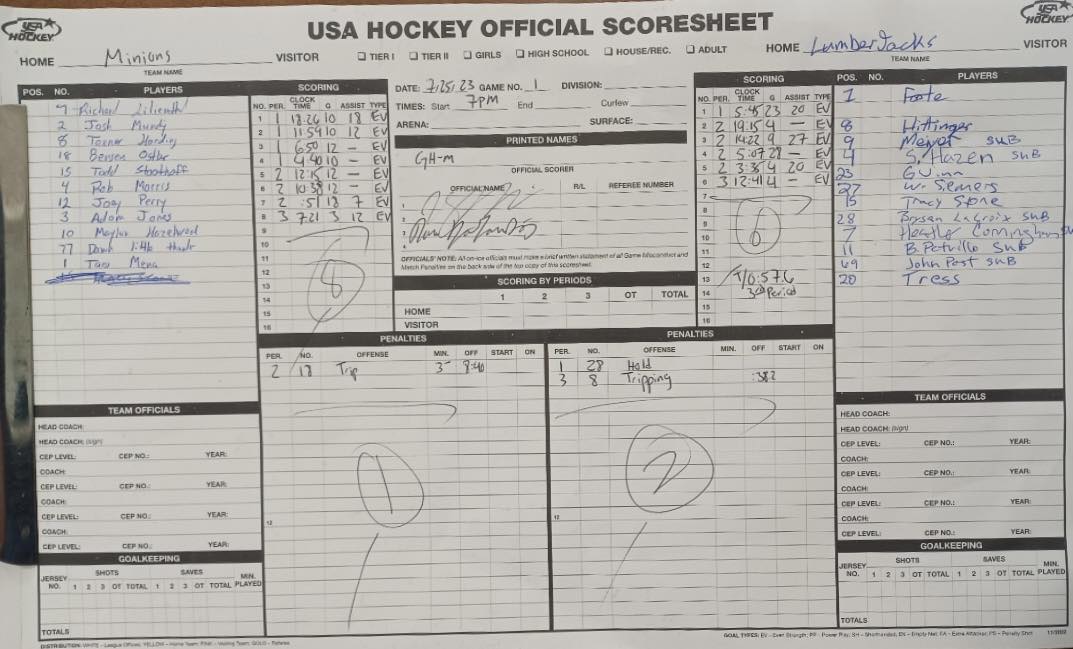 USA HOCKEY
USA HOCKEY OFFICIAL SCORESHEET
USA HOCKEY
HOME Minions VISITOR
TEAM NAME
☐ TIER I ☐ TIER II ☐ GIRLS ☐ HIGH SCHOOL ☐ HOUSE/REC. ☐ ADULT
HOME LumberJacks VISITOR
TEAM NAME
POS. NO. PLAYERS
2 Josh Mundy
8 Tanner Harding
18 Bensen
15 Todd Stoothoff
4 Rob Morris
12 Joey Perry
3 Adam Jones
10 Hazelwood
77
1 Mena
SCORING
NO. PER. CLOCK TIME G ASSIST TYPE
1 1 18:26 10 18 EV
2 1 11:59 10 12 EV
3 1 6:50 12 — EV
4 1 4:40 10 — EV
5 2 12:15 12 — EV
6 2 10:38 12 — EV
7 2 :51 18 7 EV
8 3 7:21 3 12 EV
9
10
11
12
13
14
15
16
8
DATE: 7/25/23 GAME NO. 1 DIVISION:
TIMES: Start 7PM End Curfew
ARENA: SURFACE:
PRINTED NAMES
GH-M
OFFICIAL SCORER
OFFICIAL NAME R/L REFEREE NUMBER
1
2
3
4
OFFICIALS' NOTE: All on-ice officials must make a brief written statement of all Game Misconduct and
Match Penalties on the back side of the top copy of this scoresheet.
SCORING BY PERIODS
1 2 3 OT TOTAL
HOME
VISITOR
SCORING
NO. PER. CLOCK TIME G ASSIST TYPE
1 1 5:45 23 20 EV
2 2 19:15 4 — EV
3 2 14:22 9 27 EV
4 2 5:07 28 — EV
5 2 3:35 4 20 EV
6 3 12:41 4 — EV
7
8
9
10
11
12
13
14
15
16
6
T/O :57.6
3rd Period
POS. NO. PLAYERS
1 Foote
8 Hittinger
9 Meyer SUB
4 S. Hazen SUB
23 Guinn
27 W. Semers
15 Tracy Stone
28 Bryan LaCroix SUB
7 Heather
11 B. Patrillo SUB
69 John Post SUB
20 Tress
PENALTIES
PER. NO. OFFENSE MIN. OFF START ON
2 18 Trip 3 8:40
12
1
PENALTIES
PER. NO. OFFENSE MIN. OFF START ON
1 28 Hold
3 8 Tripping :38.2
12
2
TEAM OFFICIALS
HEAD COACH:
HEAD COACH: (sign)
CEP LEVEL: CEP NO.: YEAR:
COACH:
CEP LEVEL: CEP NO.: YEAR:
COACH:
CEP LEVEL: CEP NO.: YEAR:
COACH:
CEP LEVEL: CEP NO.: YEAR:
GOALKEEPING
JERSEY NO. SHOTS 1 2 3 OT TOTAL SAVES 1 2 3 OT TOTAL MIN. PLAYED
TOTALS
TEAM OFFICIALS
HEAD COACH:
HEAD COACH: (sign)
CEP LEVEL: CEP NO.: YEAR:
COACH:
CEP LEVEL: CEP NO.: YEAR:
COACH:
CEP LEVEL: CEP NO.: YEAR:
COACH:
CEP LEVEL: CEP NO.: YEAR:
GOALKEEPING
JERSEY NO. SHOTS 1 2 3 OT TOTAL SAVES 1 2 3 OT TOTAL MIN. PLAYED
TOTALS
DISTRIBUTION: WHITE - League Offices; YELLOW - Home Team; PINK - Visiting Team; GOLD - Referee
GOAL TYPES: EV - Even Strength; PP - Power Play; SH - Shorthanded; EN - Empty Net; EA - Extra Attacker; PS - Penalty Shot